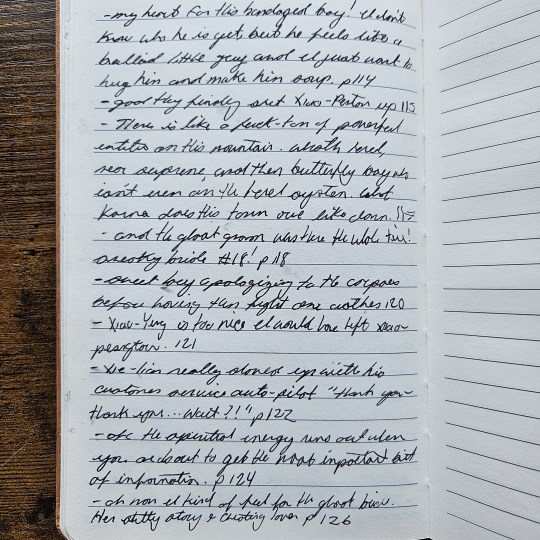 -my heart for this bandaged boy! I don't
know who he is yet but he feels like a
ballad little guy and I just want to
hug him and make him soup. p114
- good they finally shut Xiao-Pengtou up 115
- There is like a fuck-ton of powerful
entities on this mountain. wrath level,
near supreme, and then butterfly boy who
isn't even on the level system. what
karma does this town owe like damn. 117
- and the ghost groom was here the whole time!
sneaky bride #18! p118
- sweet boy apologizing to the corpses
before having them fight one another 120
- Xiao-Ying is too nice I would have left Xiao-
pengtou. 121
- Xie-lian really slowed up with his
customer service auto-pilot "thank you-
thank you... wait?!" p122
- ofc the spiritual energy runs out when
you are about to get the most important bit
of information. p124
- oh man I kind of feel for the ghost bride.
Her shitty story & cheating lover p126